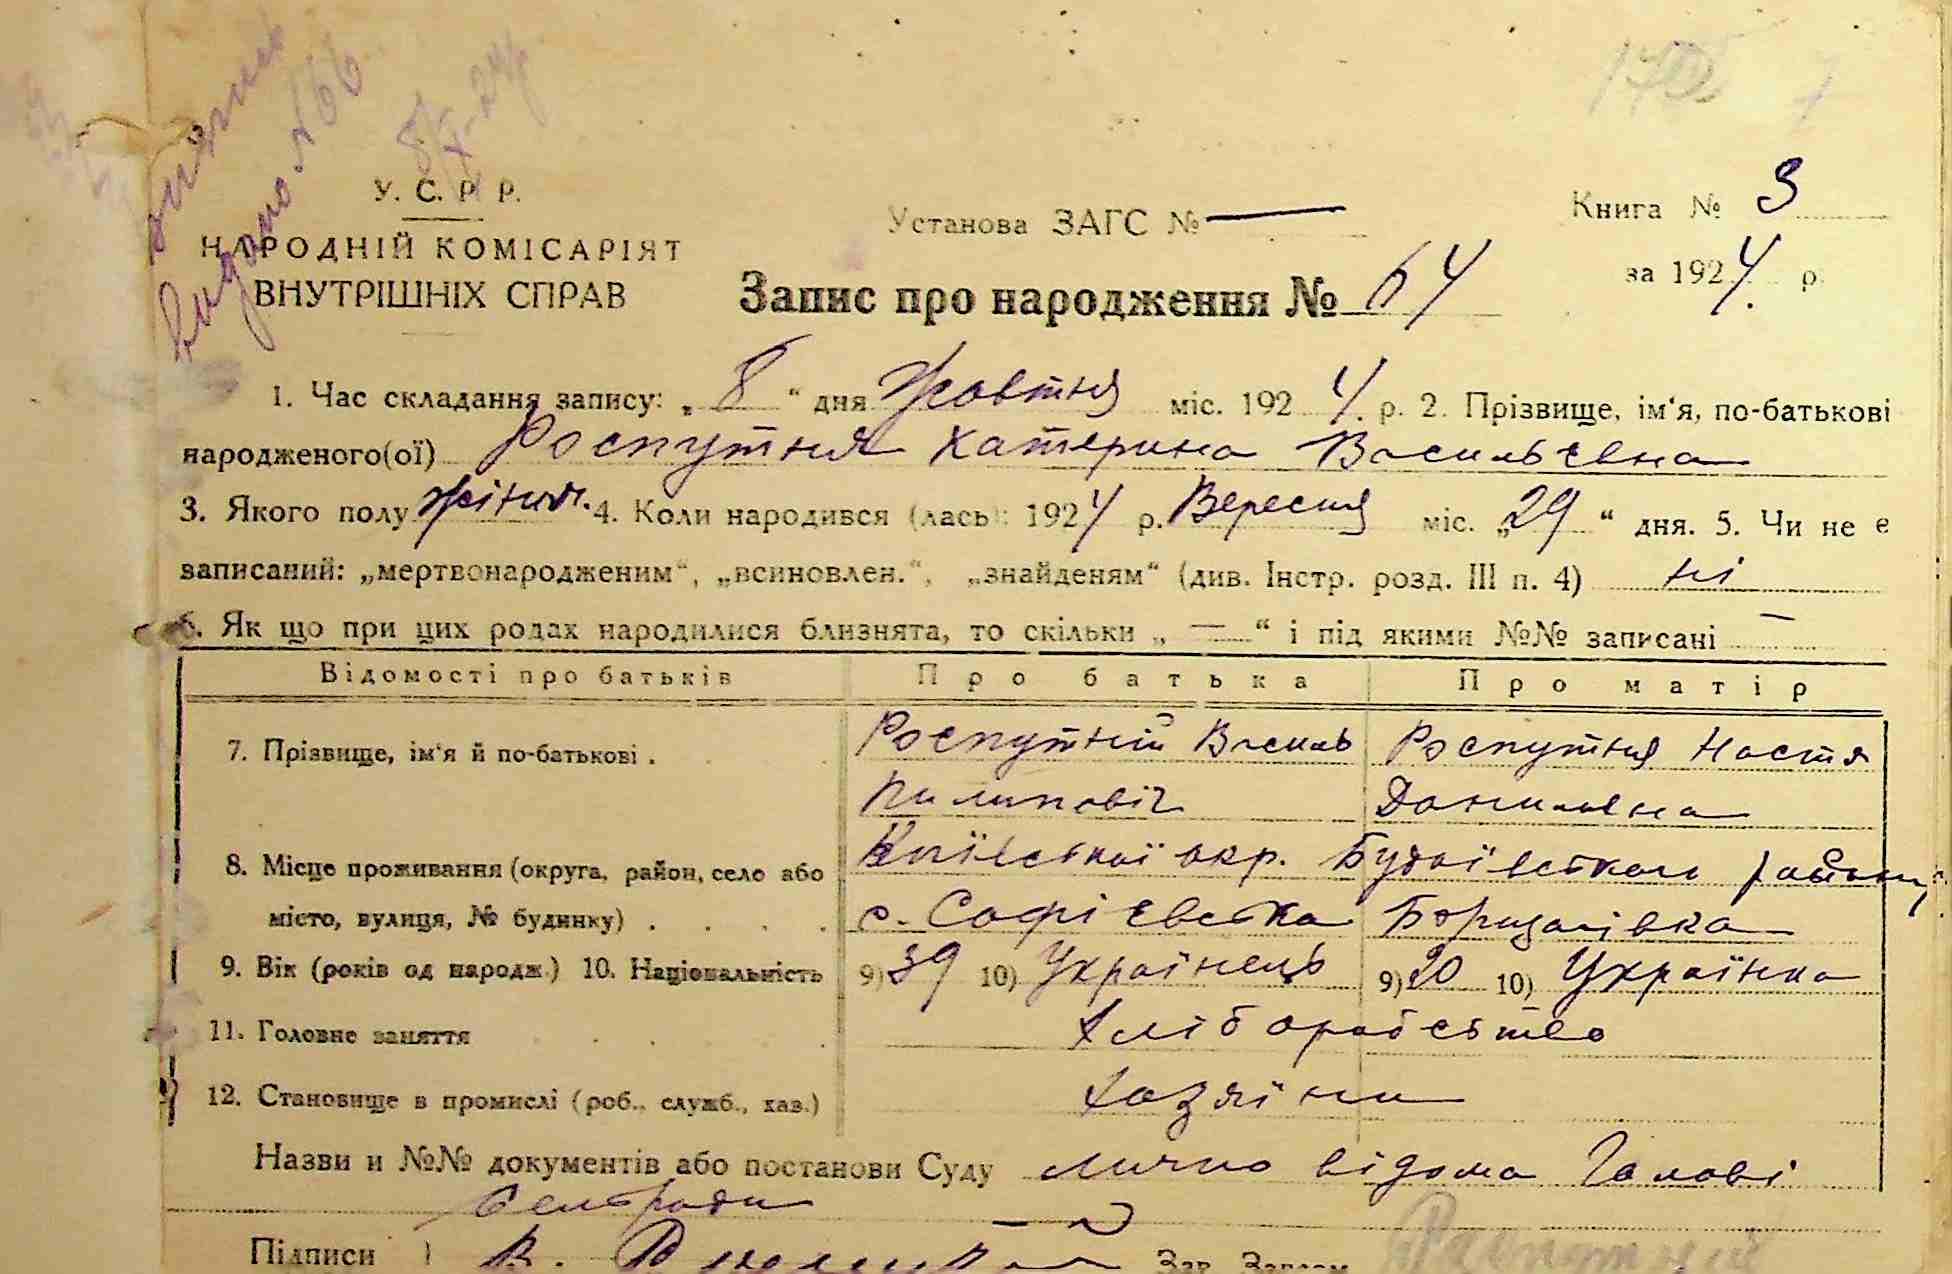 Випись
видано №66
8/X-24
У. С. Р. Р.
НАРОДНІЙ КОМІСАРІЯТ
ВНУТРІШНІХ СПРАВ
Установа ЗАГС № —
Книга № 3
за 1924 р.
Запис про народження № 64
1. Час складання запису: „8“ дня Жовтня міс. 1924 р. 2. Прізвище, ім‘я, по-батькові
народженого(ої) Роспутния Катерина Васильєвна
3. Якого полу жіноч. 4. Коли народився (лась): 1924 р. Вересня міс. „29“ дня. 5. Чи не є
записаний: „мертвонародженим“, „всиновлен.“, „знайденям“ (див. Інстр. розд. III п. 4) ні
6. Як що при цих родах народилися близнята, то скільки „—“ і під якими №№ записані —
Відомості про батьків Про батька Про матір
7. Прізвище, ім‘я й по-батькові . Роспутній Василь Роспутния Настя
Пилиповіч Данильвна
8. Місце проживання (округа, район, село або Київської окр. Будаївського району
місто, вулиця, № будинку) . . . . с. Софієвська Борщагівка
9. Вік (років од народж.) 10. Національність 9) 39 10) Українець 9) 20 10) Українка
11. Головне заняття Хліборобство
12. Становище в промислі (роб., служб., хаз.) Хазяїни
Назви и №№ документів або постанови Суду лично відома Голові
сельради
Підписи
Зав. Загсом